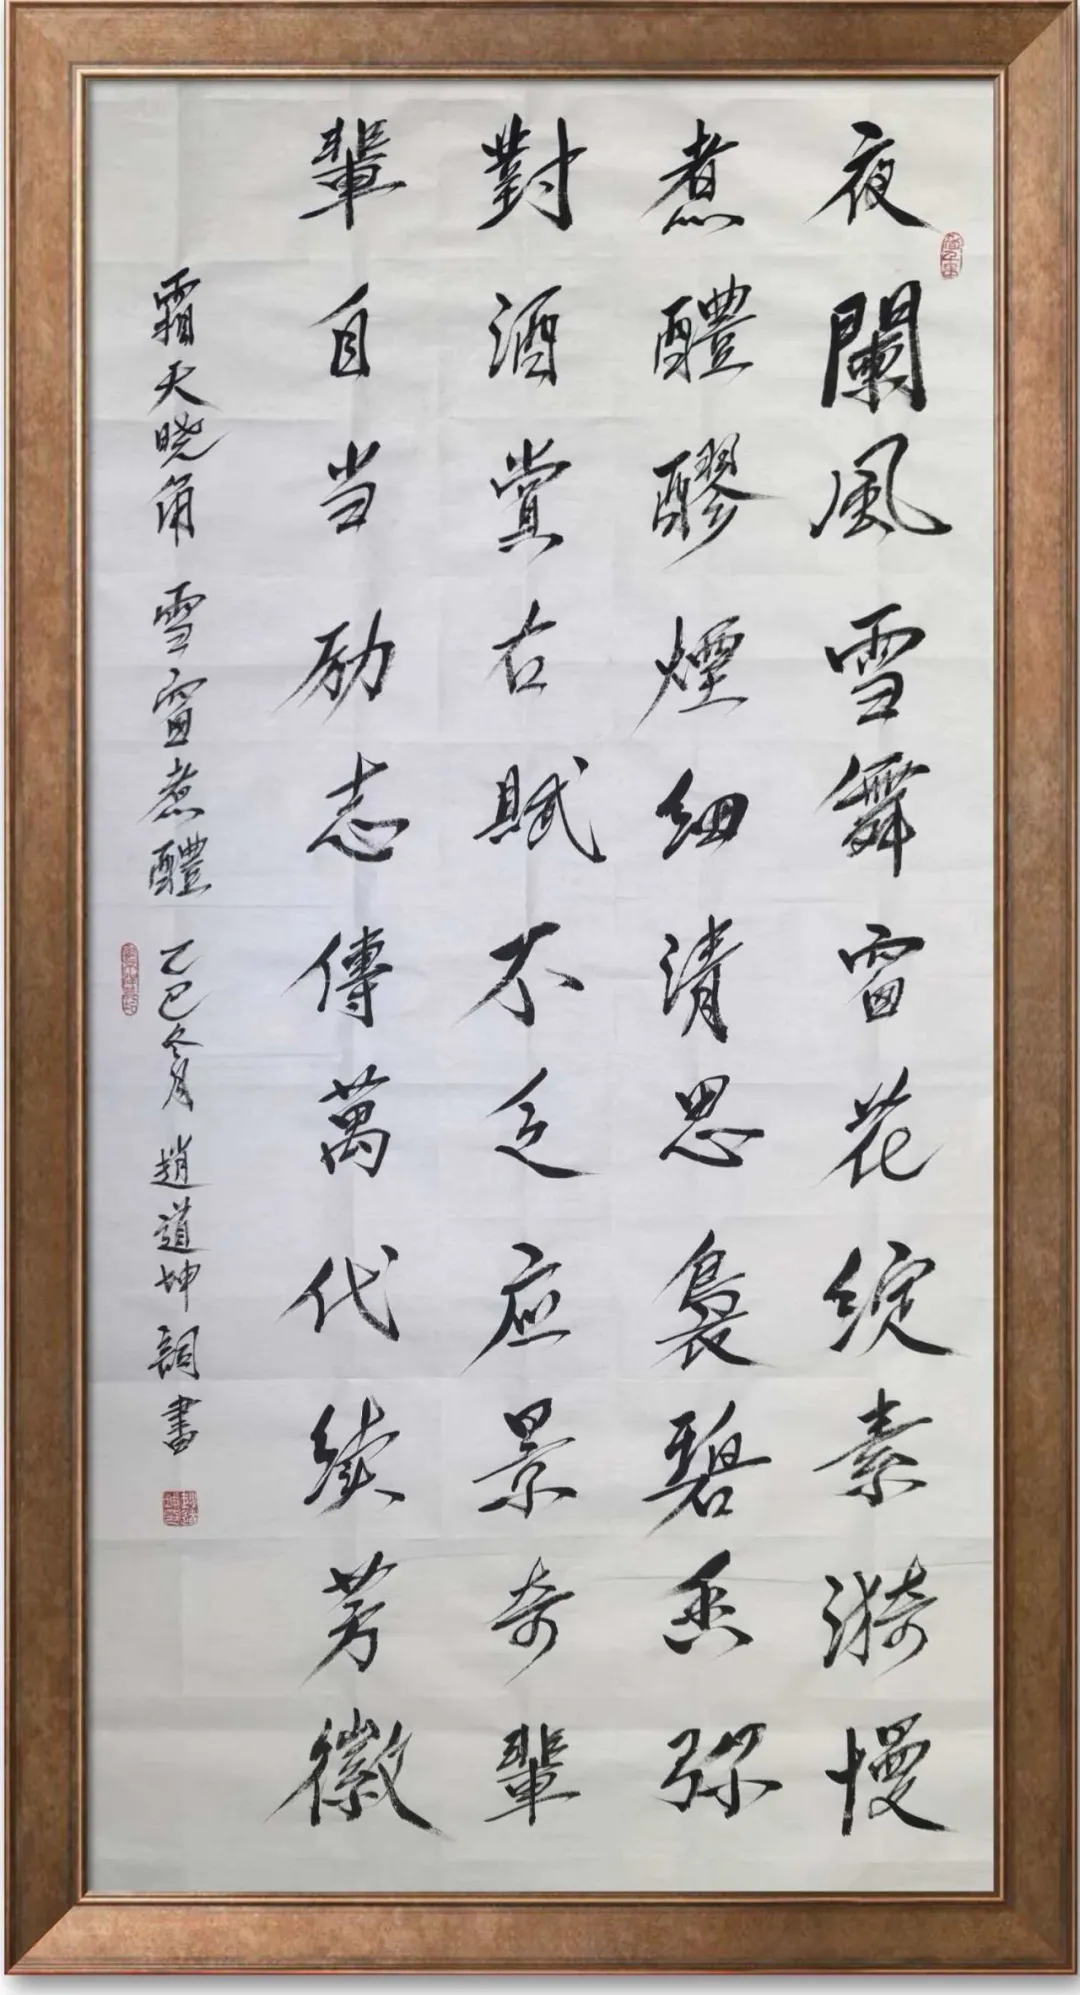 夜闌風雪舞窗花綻素漪慢
煮醴醪煙細清思裊碧香弥
對酒賞古賦不乏应景奇輩
輩自当励志傳萬代续芳徽
霜天晓角 雪窗煮醴 乙巳冬月 趙道坤詞書